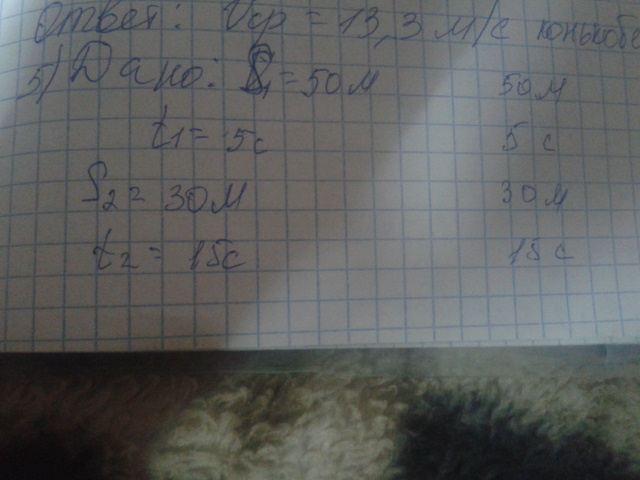 Ответ: Vср = 13,3 м/с
5) Дано: S1 = 50м 50м
t1 = 5с 5 с
S2 = 30м 30м
t2 = 15с 15 с